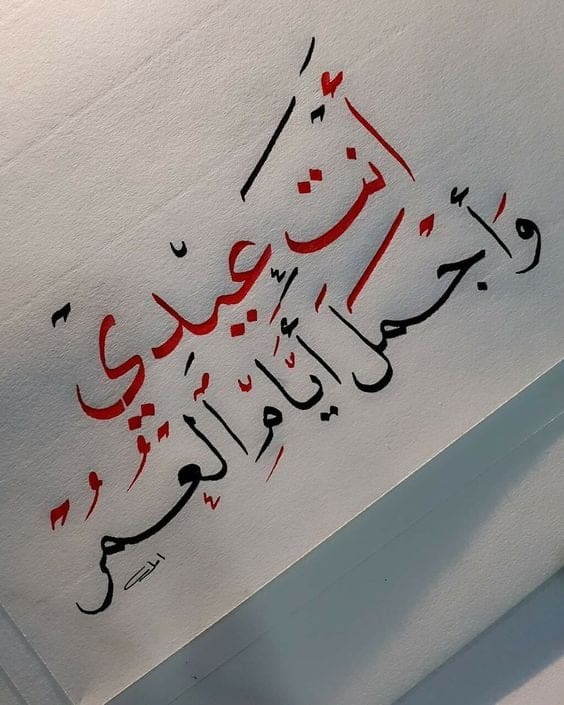 أنت عيدي
وَأجمل أيّام العمر